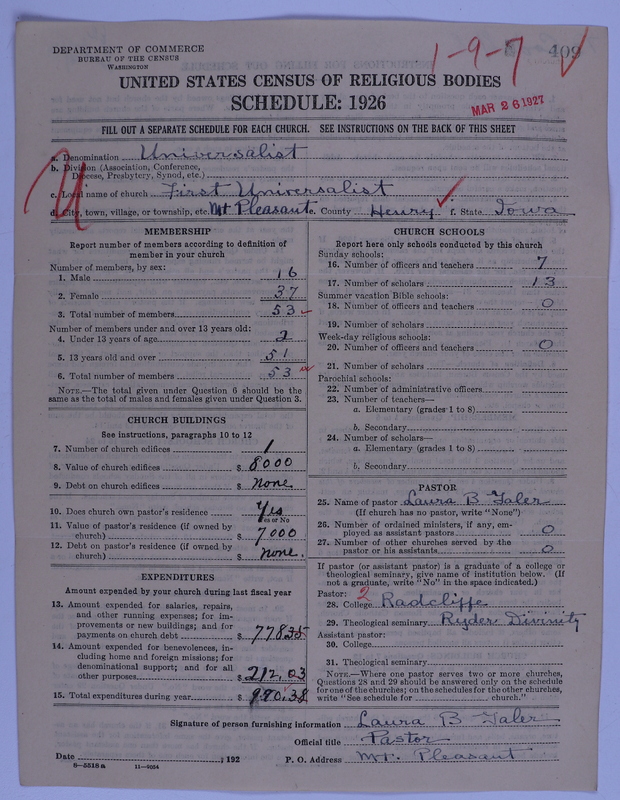 DEPARTMENT OF COMMERCE
BUREAU OF THE CENSUS
WASHINGTON
1-9-7
409
UNITED STATES CENSUS OF RELIGIOUS BODIES
SCHEDULE: 1926
MAR 26 1927
FILL OUT A SEPARATE SCHEDULE FOR EACH CHURCH. SEE INSTRUCTIONS ON THE BACK OF THIS SHEET
a. Denomination Universalist
b. Division (Association, Conference, Diocese, Presbytery, Synod, etc.)
c. Local name of church First Universalist
d. City, town, village, or township, etc. Mt Pleasant e. County Henry f. State Iowa
MEMBERSHIP
Report number of members according to definition of
member in your church
Number of members, by sex:
1. Male 16
2. Female 37
3. Total number of members 53
Number of members under and over 13 years old:
4. Under 13 years of age 2
5. 13 years old and over 51
6. Total number of members 53
NOTE.—The total given under Question 6 should be
same as the total of males and females given under Question 3.
CHURCH BUILDINGS
See instructions, paragraphs 10 to 12
7. Number of church edifices 1
8. Value of church edifices $ 8000
9. Debt on church edifices $ none
10. Does church own pastor's residence Yes
Yes or No
11. Value of pastor's residence (if owned by
church) $ 7000
12. Debt on pastor's residence (if owned by
church) $ none.
EXPENDITURES
Amount expended by your church during last fiscal year
13. Amount expended for salaries, repairs,
and other running expenses; for im-
provements or new buildings; and for
payments on church debt $ 778 35
14. Amount expended for benevolences, in-
cluding home and foreign missions; for
denominational support; and for all
other purposes $ 212.03
15. Total expenditures during year $ 990.38
CHURCH SCHOOLS
Report here only schools conducted by this church
Sunday schools:
16. Number of officers and teachers 7
17. Number of scholars 13
Summer vacation Bible schools:
18. Number of officers and teachers 0
19. Number of scholars
Week-day religious schools:
20. Number of officers and teachers 0
21. Number of scholars
Parochial schools:
22. Number of administrative officers
23. Number of teachers—
a. Elementary (grades 1 to 8)
b. Secondary
24. Number of scholars—
a. Elementary (grades 1 to 8)
b. Secondary
PASTOR
25. Name of pastor Laura B Galer
(If church has no pastor, write "None")
26. Number of ordained ministers, if any, em-
ployed as assistant pastors 0
27. Number of other churches served by the
pastor or his assistants 0
If pastor (or assistant pastor) is a graduate of a college or
theological seminary, give name of institution below. (If
not a graduate, write "No" in the space indicated.)
Pastor: 2
28. College Radcliffe
29. Theological seminary Ryder Divinity
Assistant pastor:
30. College
31. Theological seminary
NOTE.—Where one pastor serves two or more churches,
Questions 28 and 29 should be answered only on the schedule
for one of the churches; on the schedules for the other churches,
write "See schedule for church."
Signature of person furnishing information Laura B Galer
Official title Pastor
Date , 192 P. O. Address Mt. Pleasant
8-5518a 11-9054